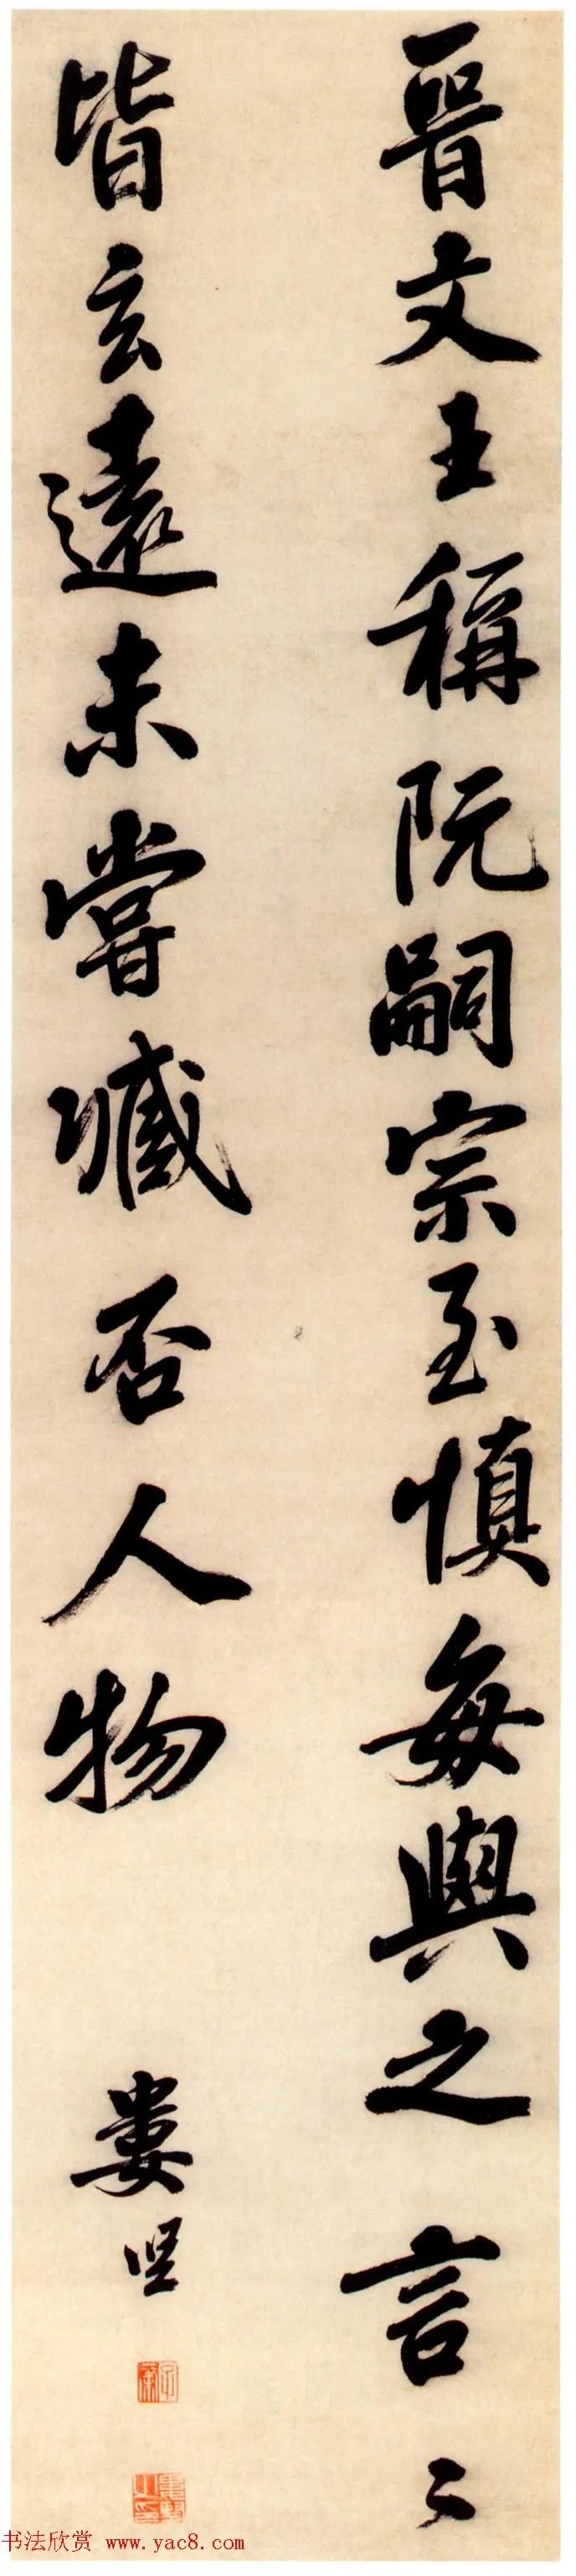 晉文王稱阮嗣宗至慎每與之言〻
皆玄遠未嘗臧否人物
婁堅
書法欣赏 www.yac8.com